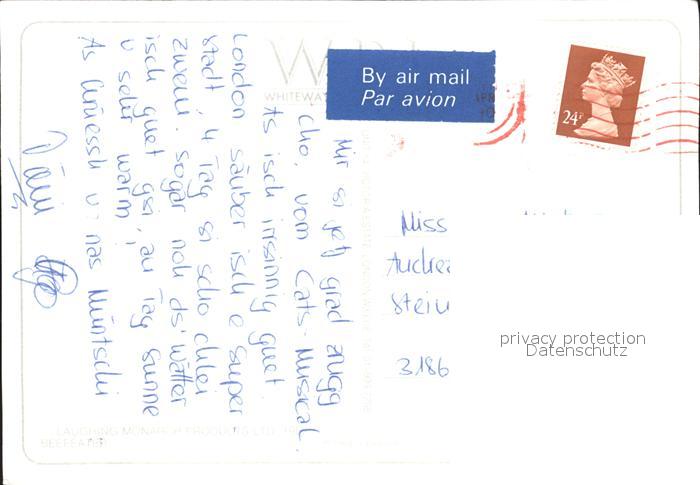 WHITEWA
By air mail
Par avion
24P
Mir si jetz grad zrugg
cho, vom Cats-Musical.
As isch irrsinnig guet.
London sälber isch e super
Stadt, 4 Täg si scho chlei
zweni. Sogar noh ds' Wätter
isch guet gsi, au Tag Sunne
u sehr warm.
As Grüessli u nas Müntschi
Miss
Andrea
Stein
3186
privacy protection
Datenschutz
LAUGHING MONARCH PRODUCTS LTD. 19
BEEFEATER